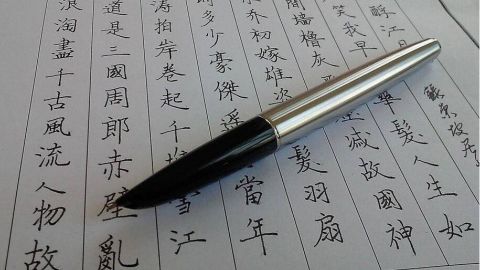 浪淘盡千古風流人物故
道是三國周郎赤壁亂
濤拍岸卷起千雪江
時多少豪傑遙當年
喬初嫁雄髮羽扇
間墻櫓灰滅故國神
笑我早華髮人生如
酹江月
蘇東坡